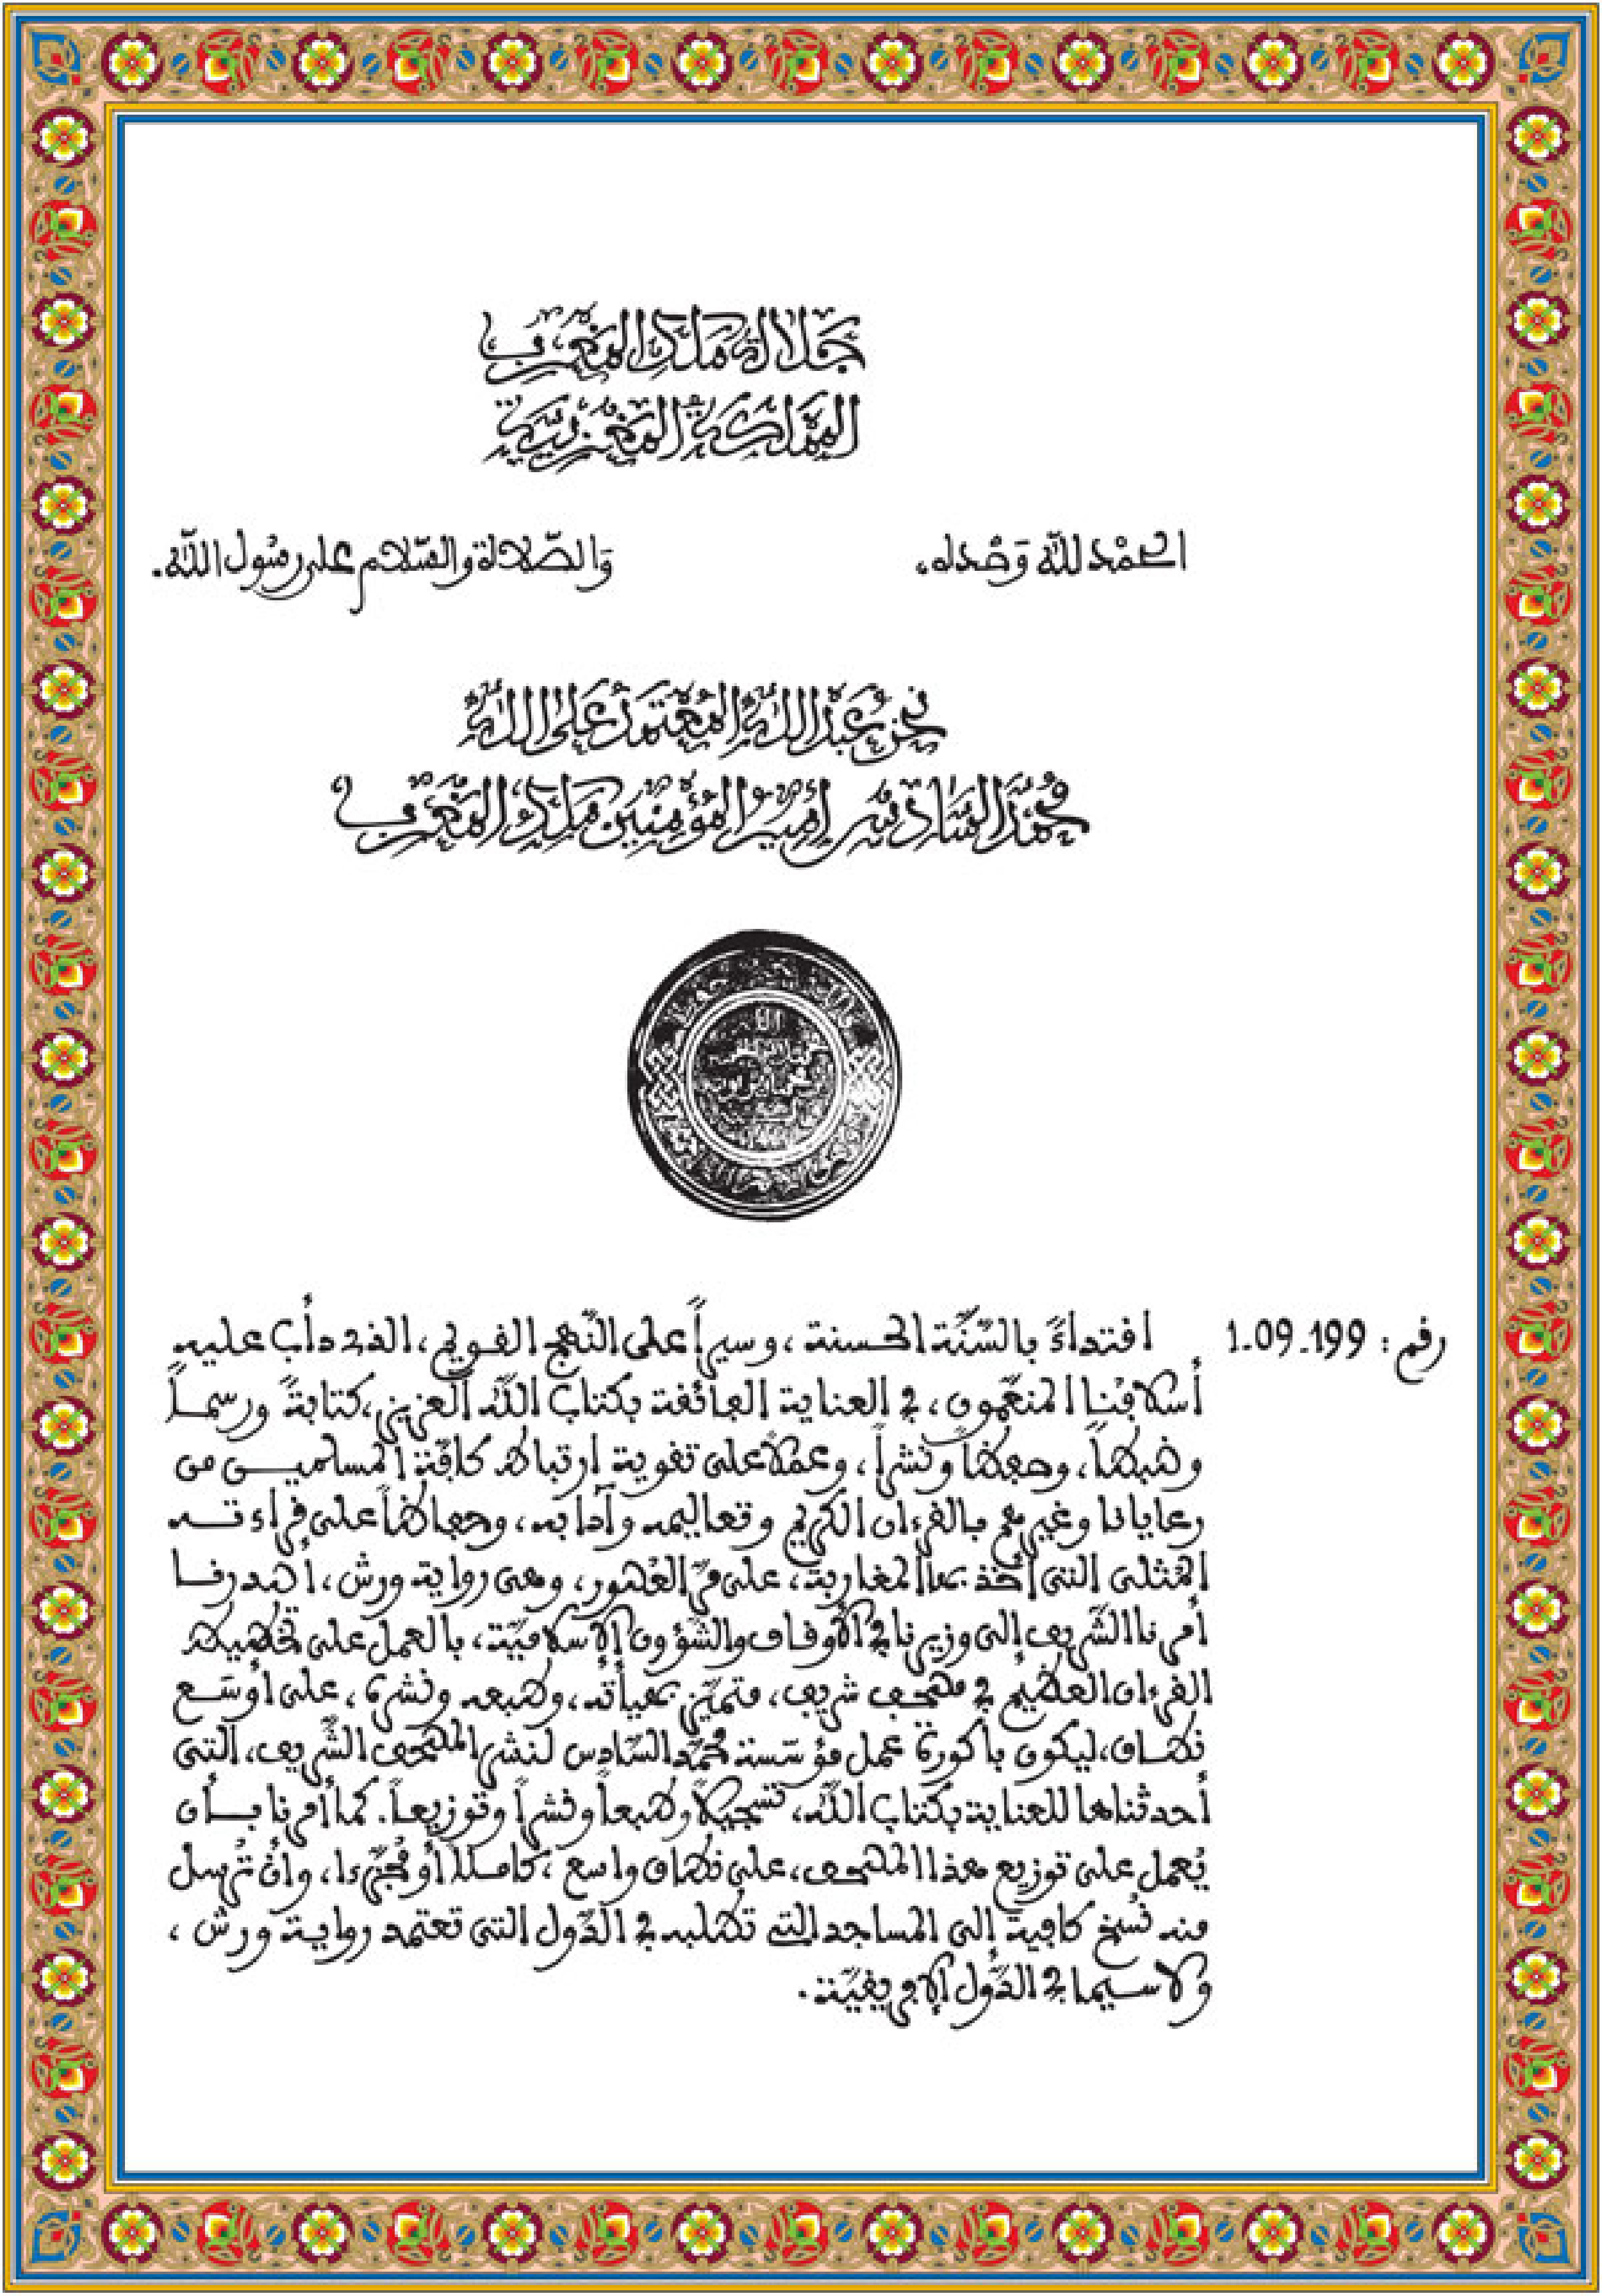 جلالة ملك المغرب
المملكة المغربية
الحمد لله وَحْده، وَالصّلاة والسّلام على رسُول اللّه.
نحن عبد الله المعتمد على الله
محمد السادس أمير المؤمنين ملك المغرب
رقم : 199-09-1 اقتداءً بالسّنّة الحسنة، وسيراً على النّهج القويم، الذي دأب عليه
أسلافنا المنعّمون، في العناية الفائقة بكتاب اللّه العزيز، كتابةً ورسماً
وضبطاً، وحفظاً ونشراً، وعملا على تقوية ارتباط كافّة المسلمين من
رعايانا وغيرهم بالقرءان الكريم وتعاليمه وآدابه، وحفاظاً على قراءته
المُثلى التي أخذ بها المغاربة، على مرّ العُصور، وهي رواية ورش، أصدرنا
أمرنا الشّريف إلى وزيرنا في الأوقاف والشّؤون الإسلاميّة، بالعمل على تخطيط
القرءان العظيم في مصحف شريف، متميّز بهيأته، وطبعه ونشره، على أوسَع
نطاق، ليكون باكورة عمل مؤسّسة محمّد السّادس لنشر المصحف الشّريف، التي
أحدثناها للعناية بكتاب اللّه، تسجيلاً وطبعاً ونشراً وتوزيعاً. كما أمرنا بأن
يُعمل على توزيع هذا المصحف، على نطاق واسع، كاملا أو مُجزّءا، وأن تُرسل
منه نُسخ كافية إلى المساجد التي تطلبه في الدّول التي تعتمد رواية ورش،
ولا سيما في الدّول الإفريقيّة.